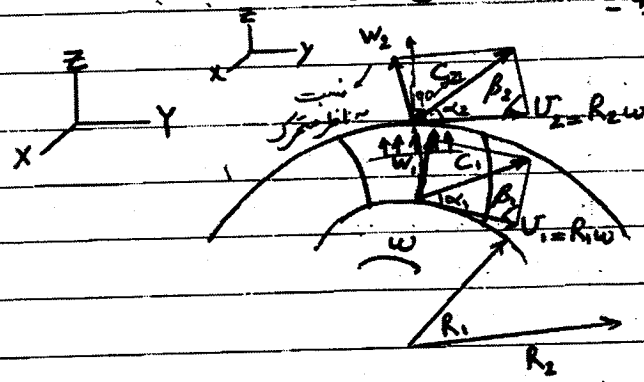 Z
Y
X
Z
Y
X
W₂
C₂
90
α₂
β₂
U₂=R₂ω
نسبت
W₁
C₁
α₁
β₁
U₁=R₁ω
ω
R₁
R₂